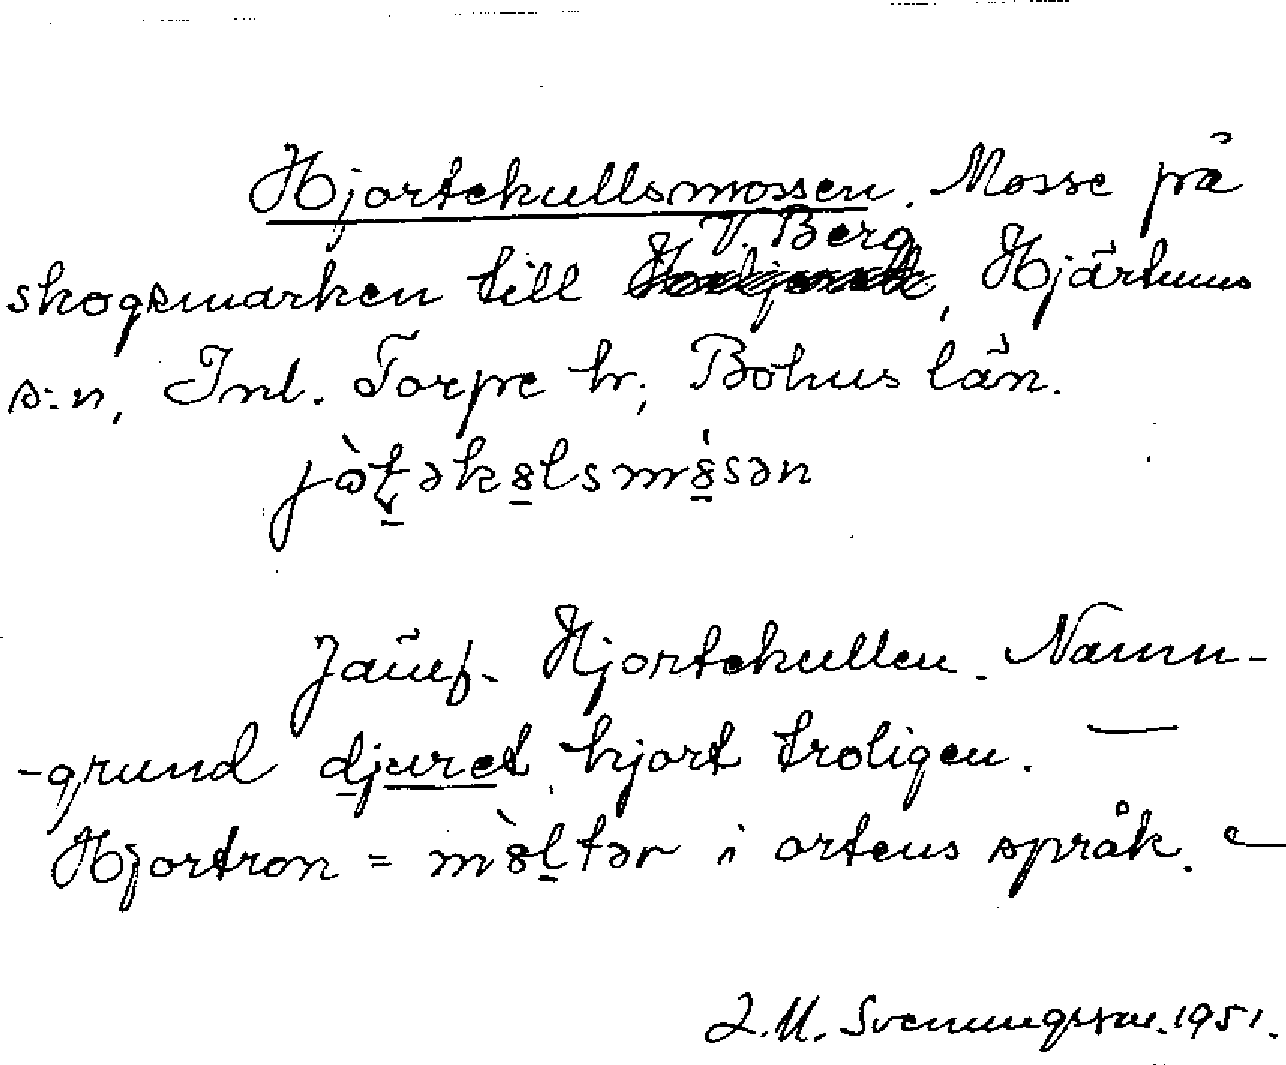 Hjortekullsmossen. Mosse på
skogsmarken till V. Berg, Hjärtums
s:n, Inl. Torpe hr, Bohus län.
Jämf. Hjortekullen. Namn-
-grund djuret hjort troligen. —
Hjortron = i ortens språk.
L.M. Svenungsson. 1951.